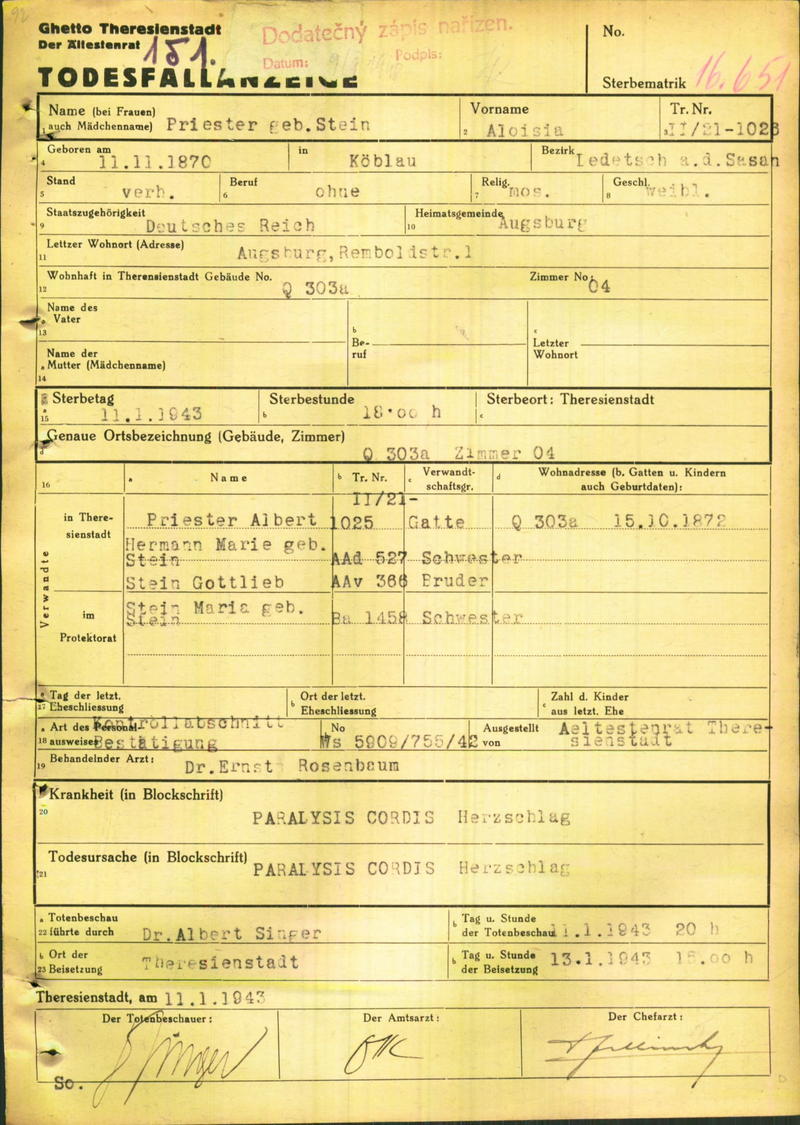 Ghetto Theresienstadt
Der Ältestenrat
181.
TODESFALLANZEIGE
Dodatečný zápis nařízen.
Datum:
Podpis:
No.
Sterbematrik 16.651
Name (bei Frauen)
auch Mädchenname) Priester geb.Stein
Vorname
2 Aloisia
Tr. Nr.
3 II/21-1026
Geboren am
4 11.11.1870
in
Köblau
Bezirk
Ledetsch a.d.Sasan
Stand
5 verh.
Beruf
6 ohne
Relig.
7 mos.
Geschl.
8 weibl.
Staatszugehörigkeit
9 Deutsches Reich
Heimatsgemeinde
10 Augsburg
Lettzer Wohnort (Adresse)
11 Augsburg,Remboldstr.1
Wohnhaft in Therensienstadt Gebäude No.
12 Q 303a
Zimmer No.
04
Name des
a Vater
13
b
Be-
ruf
c
Letzter
Wohnort
Name der
a Mutter (Mädchenname)
14
Sterbetag
15 11.1.1943
Sterbestunde
b 18.00 h
Sterbeort: Theresienstadt
c
Genaue Ortsbezeichnung (Gebäude, Zimmer)
d Q 303a Zimmer 04
16
a Name
b Tr. Nr.
c Verwandt-
schaftsgr.
d Wohnadresse (b. Gatten u. Kindern
auch Geburtdaten):
Verwandte
in There-
sienstadt
II/21-
Priester Albert 1025 Gatte Q 303a 15.10.1872
Hermann Marie geb.
Stein AAd 527 Schwester
Stein Gottlieb AAv 366 Bruder
im
Protektorat
Stein Maria geb.
Stein Ba 1458 Schwester
a Tag der letzt.
17 Eheschliessung
b Ort der letzt.
Eheschliessung
c Zahl d. Kinder
aus letzt. Ehe
a Art des Personal- Kontrollabschnitt
18 ausweises Bestätigung
No
Ws 5909/755/42
Ausgestellt
von
Aeltestenrat There-
sienstadt
Behandelnder Arzt:
19 Dr.Ernst Rosenbaum
Krankheit (in Blockschrift)
20
PARALYSIS CORDIS Herzschlag
Todesursache (in Blockschrift)
21
PARALYSIS CORDIS Herzschlag
a Totenbeschau
22 führte durch Dr.Albert Singer
b Tag u. Stunde
der Totenbeschau 11.1.1943 20 h
b Ort der
23 Beisetzung Theresienstadt
b Tag u. Stunde
der Beisetzung 13.1.1943 15.00 h
Theresienstadt, am 11.1.1943
Der Totenbeschauer:
Der Amtsarzt:
Der Chefarzt:
So.